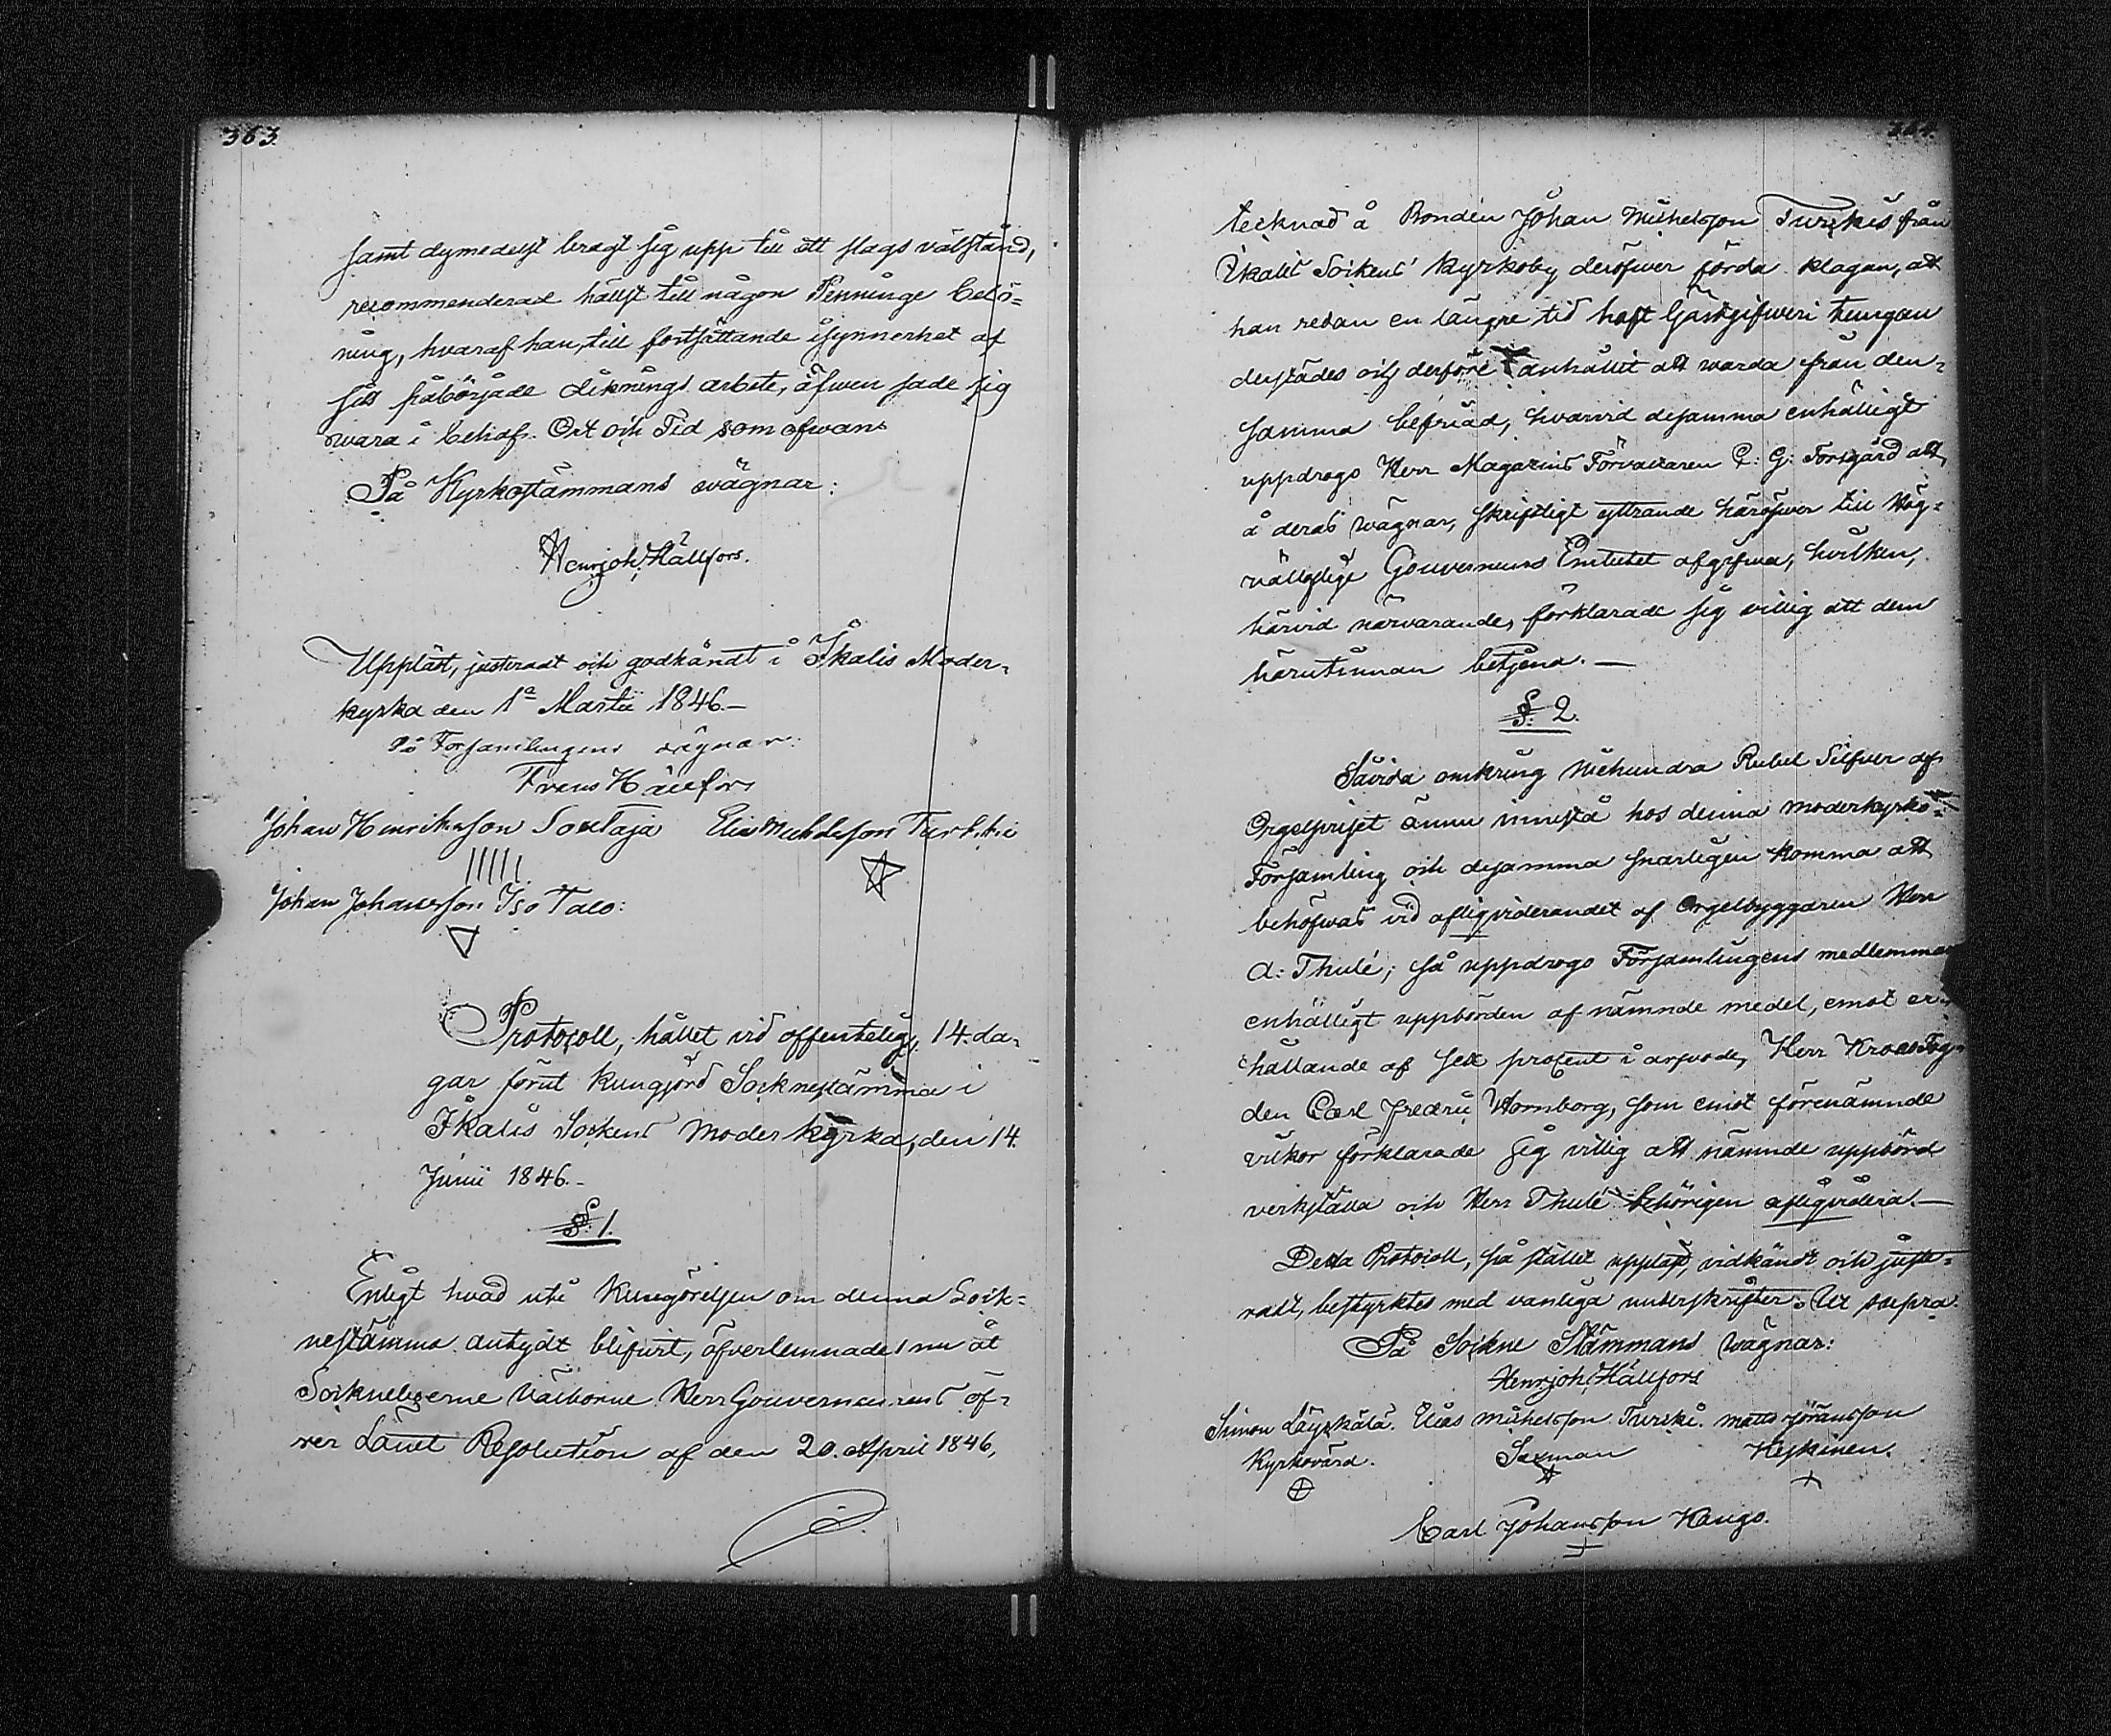 363.
samt dymedelst bragt sig upp till ett slags välstånd,
recommenderad hällst till någon Penninge belö-
ning, hvaraf han, till fortsättande isynnerhet af
sitt påbörjade diknings arbete, äfwen sade sig
wara i behof. Ort och Tid som ofwan.
På Kyrkostämmans wägnar:
Henr: Joh: Hällfors.
Uppläst, justeradt och godkändt i Ikalis Moder-
kyrka den 1a Martii 1846.—
På Församlingens wägnar:
Frens Hällfors
Johan Henriksson Sontaja Elias Michelsson Turkki
Johan Johansson Iso Talo:
Protocoll, hållet vid offentelig, 14. da-
gar förut kungjord Socknestämma i
Ikalis Sockens Moderkyrka, den 14.
Junii 1846.-
§. 1.
Enligt hvad uti Kungörelsen om denna Sock-
nestämma antydt blifvit, öfverlemnades nu åt
Sockneboerne Välborne Herr Gouverneurens öf-
ver Länet Resolution af den 20. April 1846,
364.
tecknad å Bonden Johan Michelsson Turkis från
Ikalis Sockens Kyrkoby deröfwer förda klagan, att
han redan en längre tid haft Gästgifweri tungan
derstädes och derföre anhållit att warda från den-
samma befriad, hvarvid desamma enhälligt
uppdrogo Herr Magazins Förvaltaren C: G: Forsgård att,
å deras wägnar, skriftligt yttrande häröfwer till Hög-
vällofliga Gouverneurs Embetet afgifwa, hvilken,
härvid närvarande, förklarade sig villig att dem
härutinnan betjena.—
§. 2.
Såvida omkring Niehundra Rubel Silfver af
Orgelpriset ännu innestå hos denna moderkyrko-
Församling och desamma snarligen komma att
behöfwas vid afliqviderandet af Orgelbyggaren Herr
A: Thulé; så uppdrogo Församlingens medlemmar
enhälligt uppbörden af nämnde medel, emot er-
hållande af sex procent i arfvode, Herr KronoFog-
den Carl Fredric Hornborg, som emot förenämnde
vilkor förklarade sig villig att nämnde uppbörd
verkställa och Herr Thulé behörigen afliqvidera.—
Detta Protocoll, på stället uppläst, vidkändt och juste-
radt, bestyrktes med vanliga underskrifter. Ut supra.
På Sockne Stämmans wägnar:
Henr: Joh: Hällfors
Simon Läyskälä. Elias Michelsson Turkki. Matts Jöransson
Kyrkovärd. Sexman Heskinen.
Carl Johansson Kango.